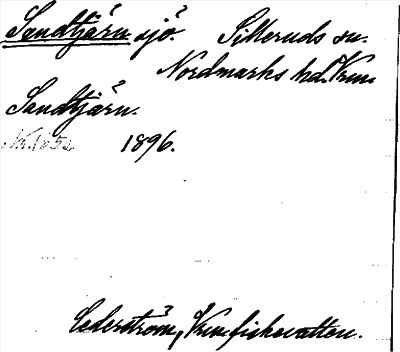 Sandtjärn sjö. Silleruds sn.
Nordmarks hd. Vrm.
Sandtjärn.
1896.
Cederström, Vrm. fiskevatten.